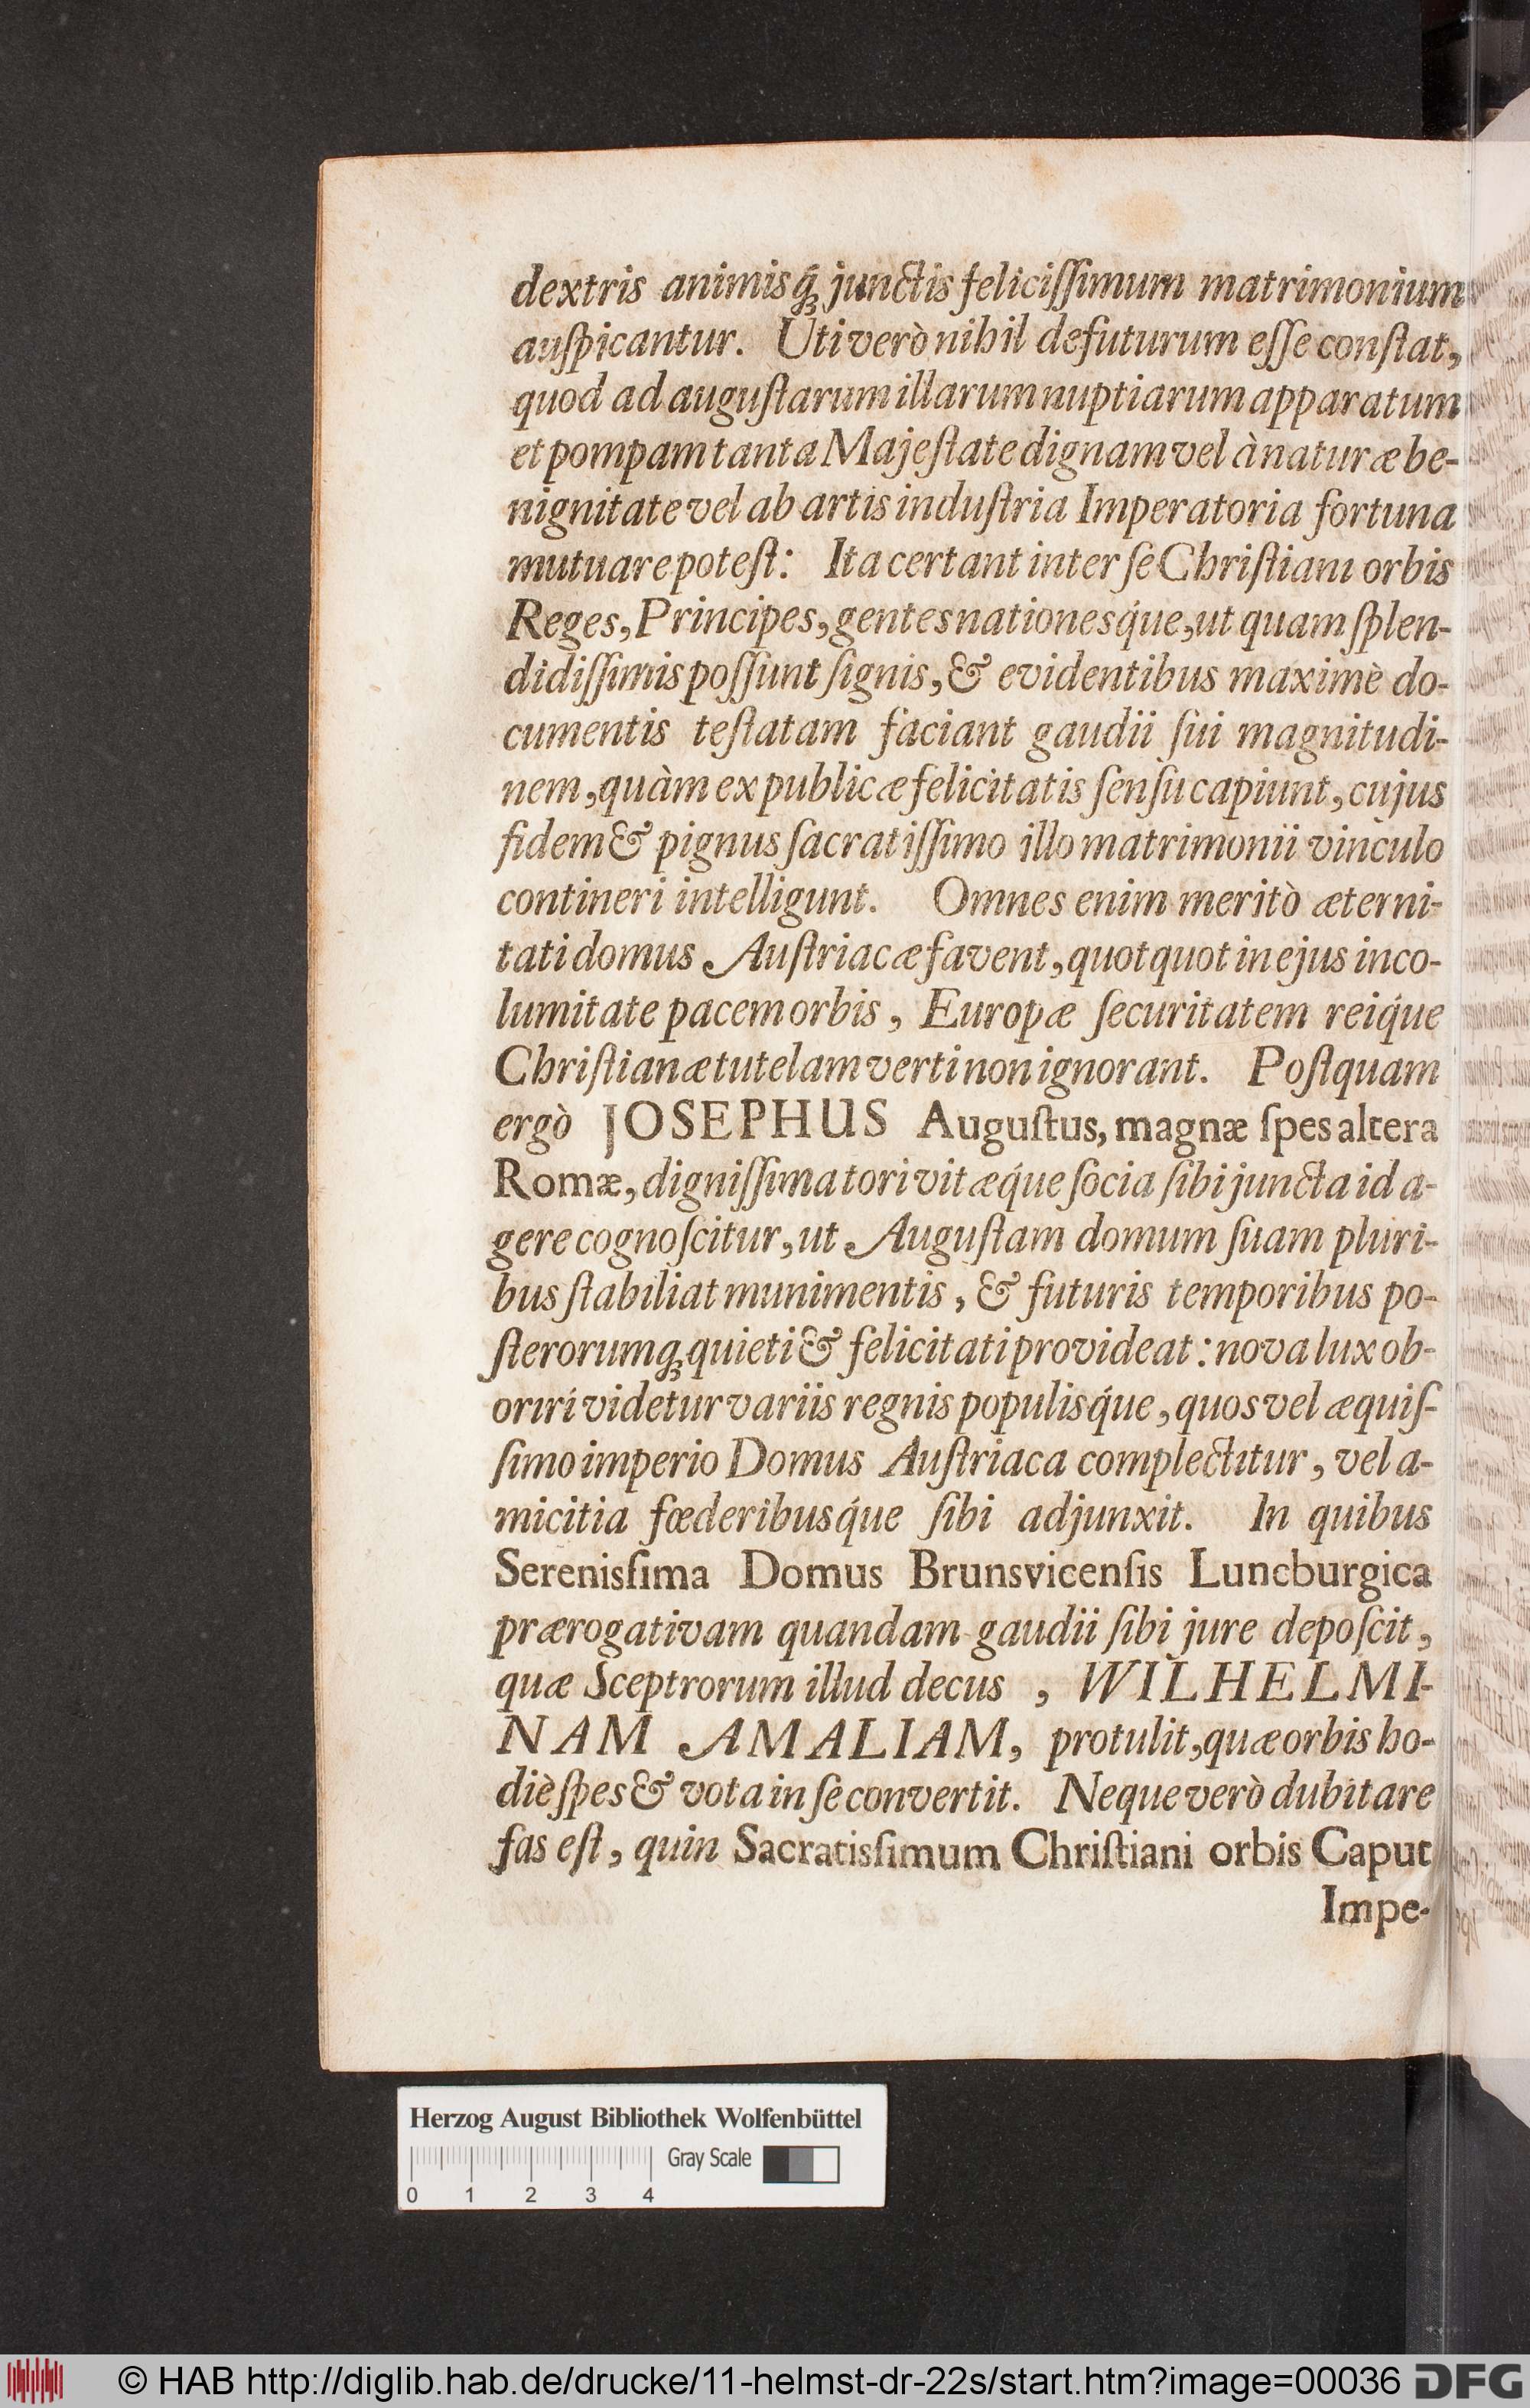 dextris animisq́; junctis feliciſſimum matrimonium
auſpicantur. Uti verò nihil defuturum eſſe conſtat,
quod ad auguſtarum illarum nuptiarum apparatum
et pompam tanta Majeſtate dignam vel à naturæ be-
nignitate vel ab artis induſtria Imperatoria fortuna
mutuare poteſt: Ita certant inter ſe Chriſtiani orbis
Reges, Principes, gentes nationesq́ue, ut quam ſplen-
didiſſimis poſſunt ſignis, & evidentibus maximè do-
cumentis teſtatam faciant gaudii ſui magnitudi-
nem, quàm ex publicæ felicitatis ſenſu capiunt, cujus
fidem & pignus ſacratiſſimo illo matrimonii vinculo
contineri intelligunt. Omnes enim meritò æterni-
tati domus Auſtriacæ favent, quotquot in ejus inco-
lumitate pacem orbis, Europæ ſecuritatem reiq́ue
Chriſtianæ tutelam verti non ignorant. Poſtquam
ergò JOSEPHUS Auguſtus, magnæ ſpes altera
Romæ, digniſſima tori vitæq́ue ſocia ſibi juncta id a-
gere cognoſcitur, ut Auguſtam domum ſuam pluri-
bus ſtabiliat munimentis, & futuris temporibus po-
ſterorumq; quieti & felicitati provideat: nova lux ob-
oriri videtur variis regnis populisq́ue, quos vel æquiſ-
ſimo imperio Domus Auſtriaca complectitur, vel a-
micitia fœderibusq́ue ſibi adjunxit. In quibus
Serenisſima Domus Brunsvicenſis Luneburgica
prærogativam quandam gaudii ſibi jure depoſcit,
quæ Sceptrorum illud decus, WILHELMI-
NAM AMALIAM, protulit, quæ orbis ho-
diè ſpes & vota in ſe convertit. Neque verò dubitare
fas eſt, quin Sacratisſimum Chriſtiani orbis Caput
Impe-
Herzog August Bibliothek Wolfenbüttel
Gray Scale
0 1 2 3 4
© HAB http://diglib.hab.de/drucke/11-helmst-dr-22s/start.htm?image=00036 DFG